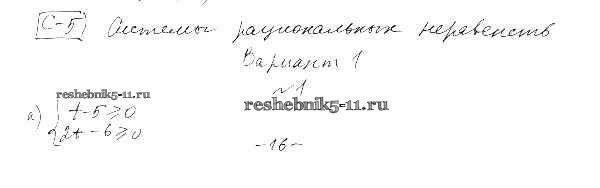 С-5 Системы рациональных неравенств
Вариант 1
№1
reshebnik5-11.ru
reshebnik5-11.ru
а) { t - 5 ≥ 0
{ 2t - 6 ≥ 0
-16-